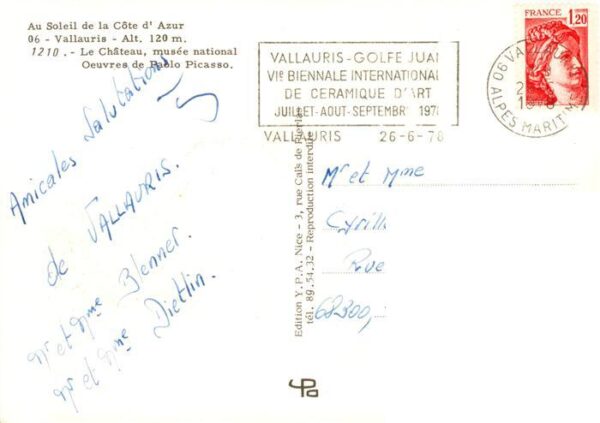 Au Soleil de la Côte d'Azur
06 - Vallauris - Alt. 120 m.
1210 .- Le Château, musée national
Oeuvres de Pablo Picasso.
Amicales Salutations
de VALLAURIS.
Mr et Mme Blenner.
Mr et Mme Dietlin.
Edition Y.P.A. Nice - 3, rue Caïs de Pierlas
tél. 89.54.32 - Reproduction interdite
VALLAURIS-GOLFE JUAN
VIe BIENNALE INTERNATIONAL
DE CERAMIQUE D'ART
JUILLET-AOUT-SEPTEMBR 1978
VALLAURIS 26-6-78
FRANCE 1,20
06 VALLAURIS
ALPES MARITIMES
Mr et Mme
Cyrille
Rue
68300,